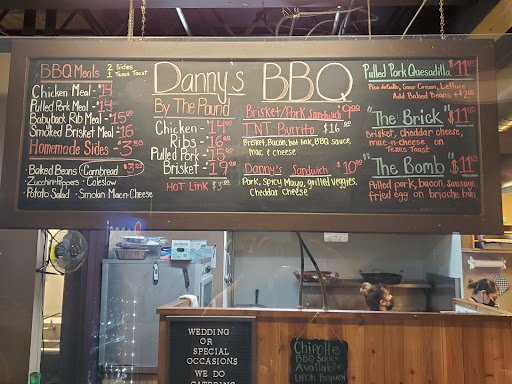 BBQ Meals 2 Sides
1 Texas Toast
Chicken Meal - $14
Pulled Pork Meal - $14
Babyback Rib Meal - $15
Smoked Brisket Meal - $16
Homemade Sides - $3.50
Baked Beans Cornbread
Zucchini+Peppers · Coleslaw
Potato Salad · Smokin Mac-n-Cheese
Danny's BBQ
By The Pound
Chicken - $14
Ribs - $16
Pulled Pork $15
Brisket - $19
HOT LINK $3
Brisket/Pork Sandwich $9.00
TNT Burrito $16
Brisket, Bacon, hot link, BBQ sauce,
mac & cheese
Danny's Sandwich $10
Pork, Spicy Mayo, grilled veggies,
Cheddar Cheese
Pulled Pork Quesadilla $11
Pico de Gallo, Sour Cream, Lettuce
Add Baked Beans +$2
"The Brick" $11
Brisket, cheddar cheese,
mac-n-cheese on
Texas Toast
"The Bomb" $11
Pulled pork, bacon, sausage,
fried egg on brioche bun
WEDDING
OR
SPECIAL
OCCASIONS
WE DO
CATERING
Chipotle
BBQ Sauce
Available
Upon Request